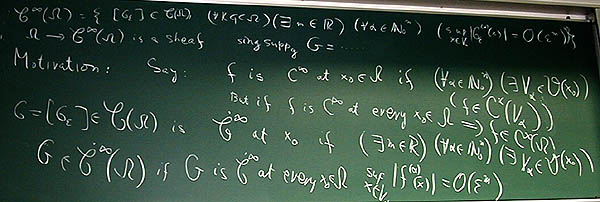 𝒢^∞(Ω) = { [G_ε] ∈ 𝒢(Ω), (∀K⊂Ω) (∃m∈ℝ) (∀α∈ℕ₀ⁿ) (sup_{x∈K} |G_ε^{(α)}(x)| = O(ε^m)) }
Ω → 𝒢^∞(Ω) is a sheaf sing supp G = .....
Motivation: Say: f is C^∞ at x₀∈Ω if (∀α∈ℕ₀ⁿ) (∃V_α∈𝒱(x₀))
(f∈C^α(V_α))
But if f is C^∞ at every x₀∈Ω ⇒ f∈C^∞(Ω)
G=[G_ε]∈𝒢(Ω) is 𝒢̇^∞ at x₀ if (∃m∈ℝ) (∀α∈ℕ₀ⁿ) (∃V_α∈𝒱(x₀))
G∈𝒢̇^∞(Ω) if G is 𝒢̇^∞ at every x₀∈Ω sup_{x∈V_α} |f^{(α)}(x)| = O(ε^m)